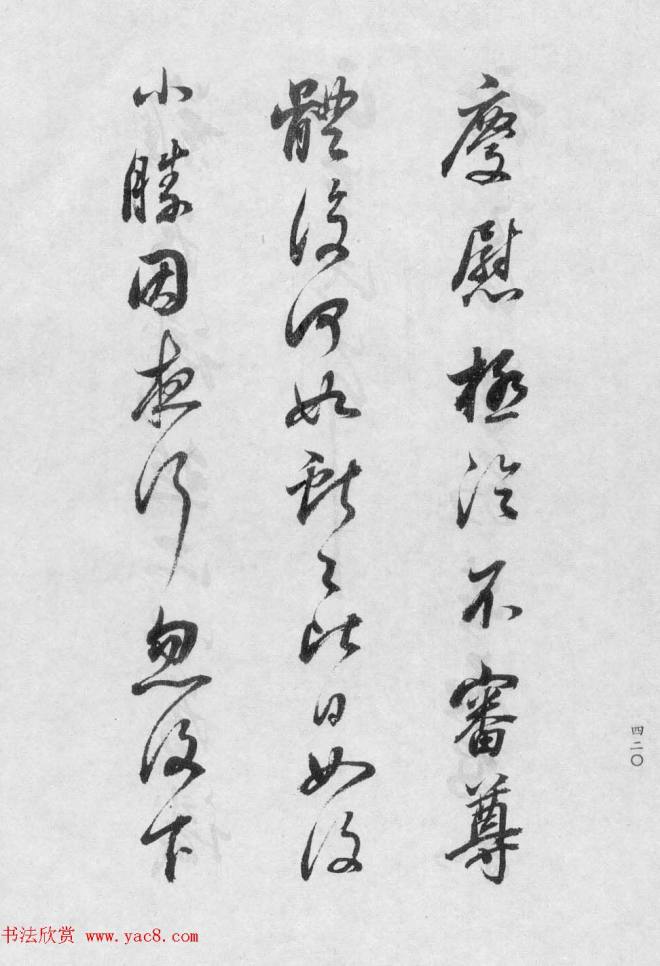 慶慰極冷不審尊
體復何如獻之比日如復
小勝因夜行忽復下
四二〇
书法欣赏 www.yac8.com